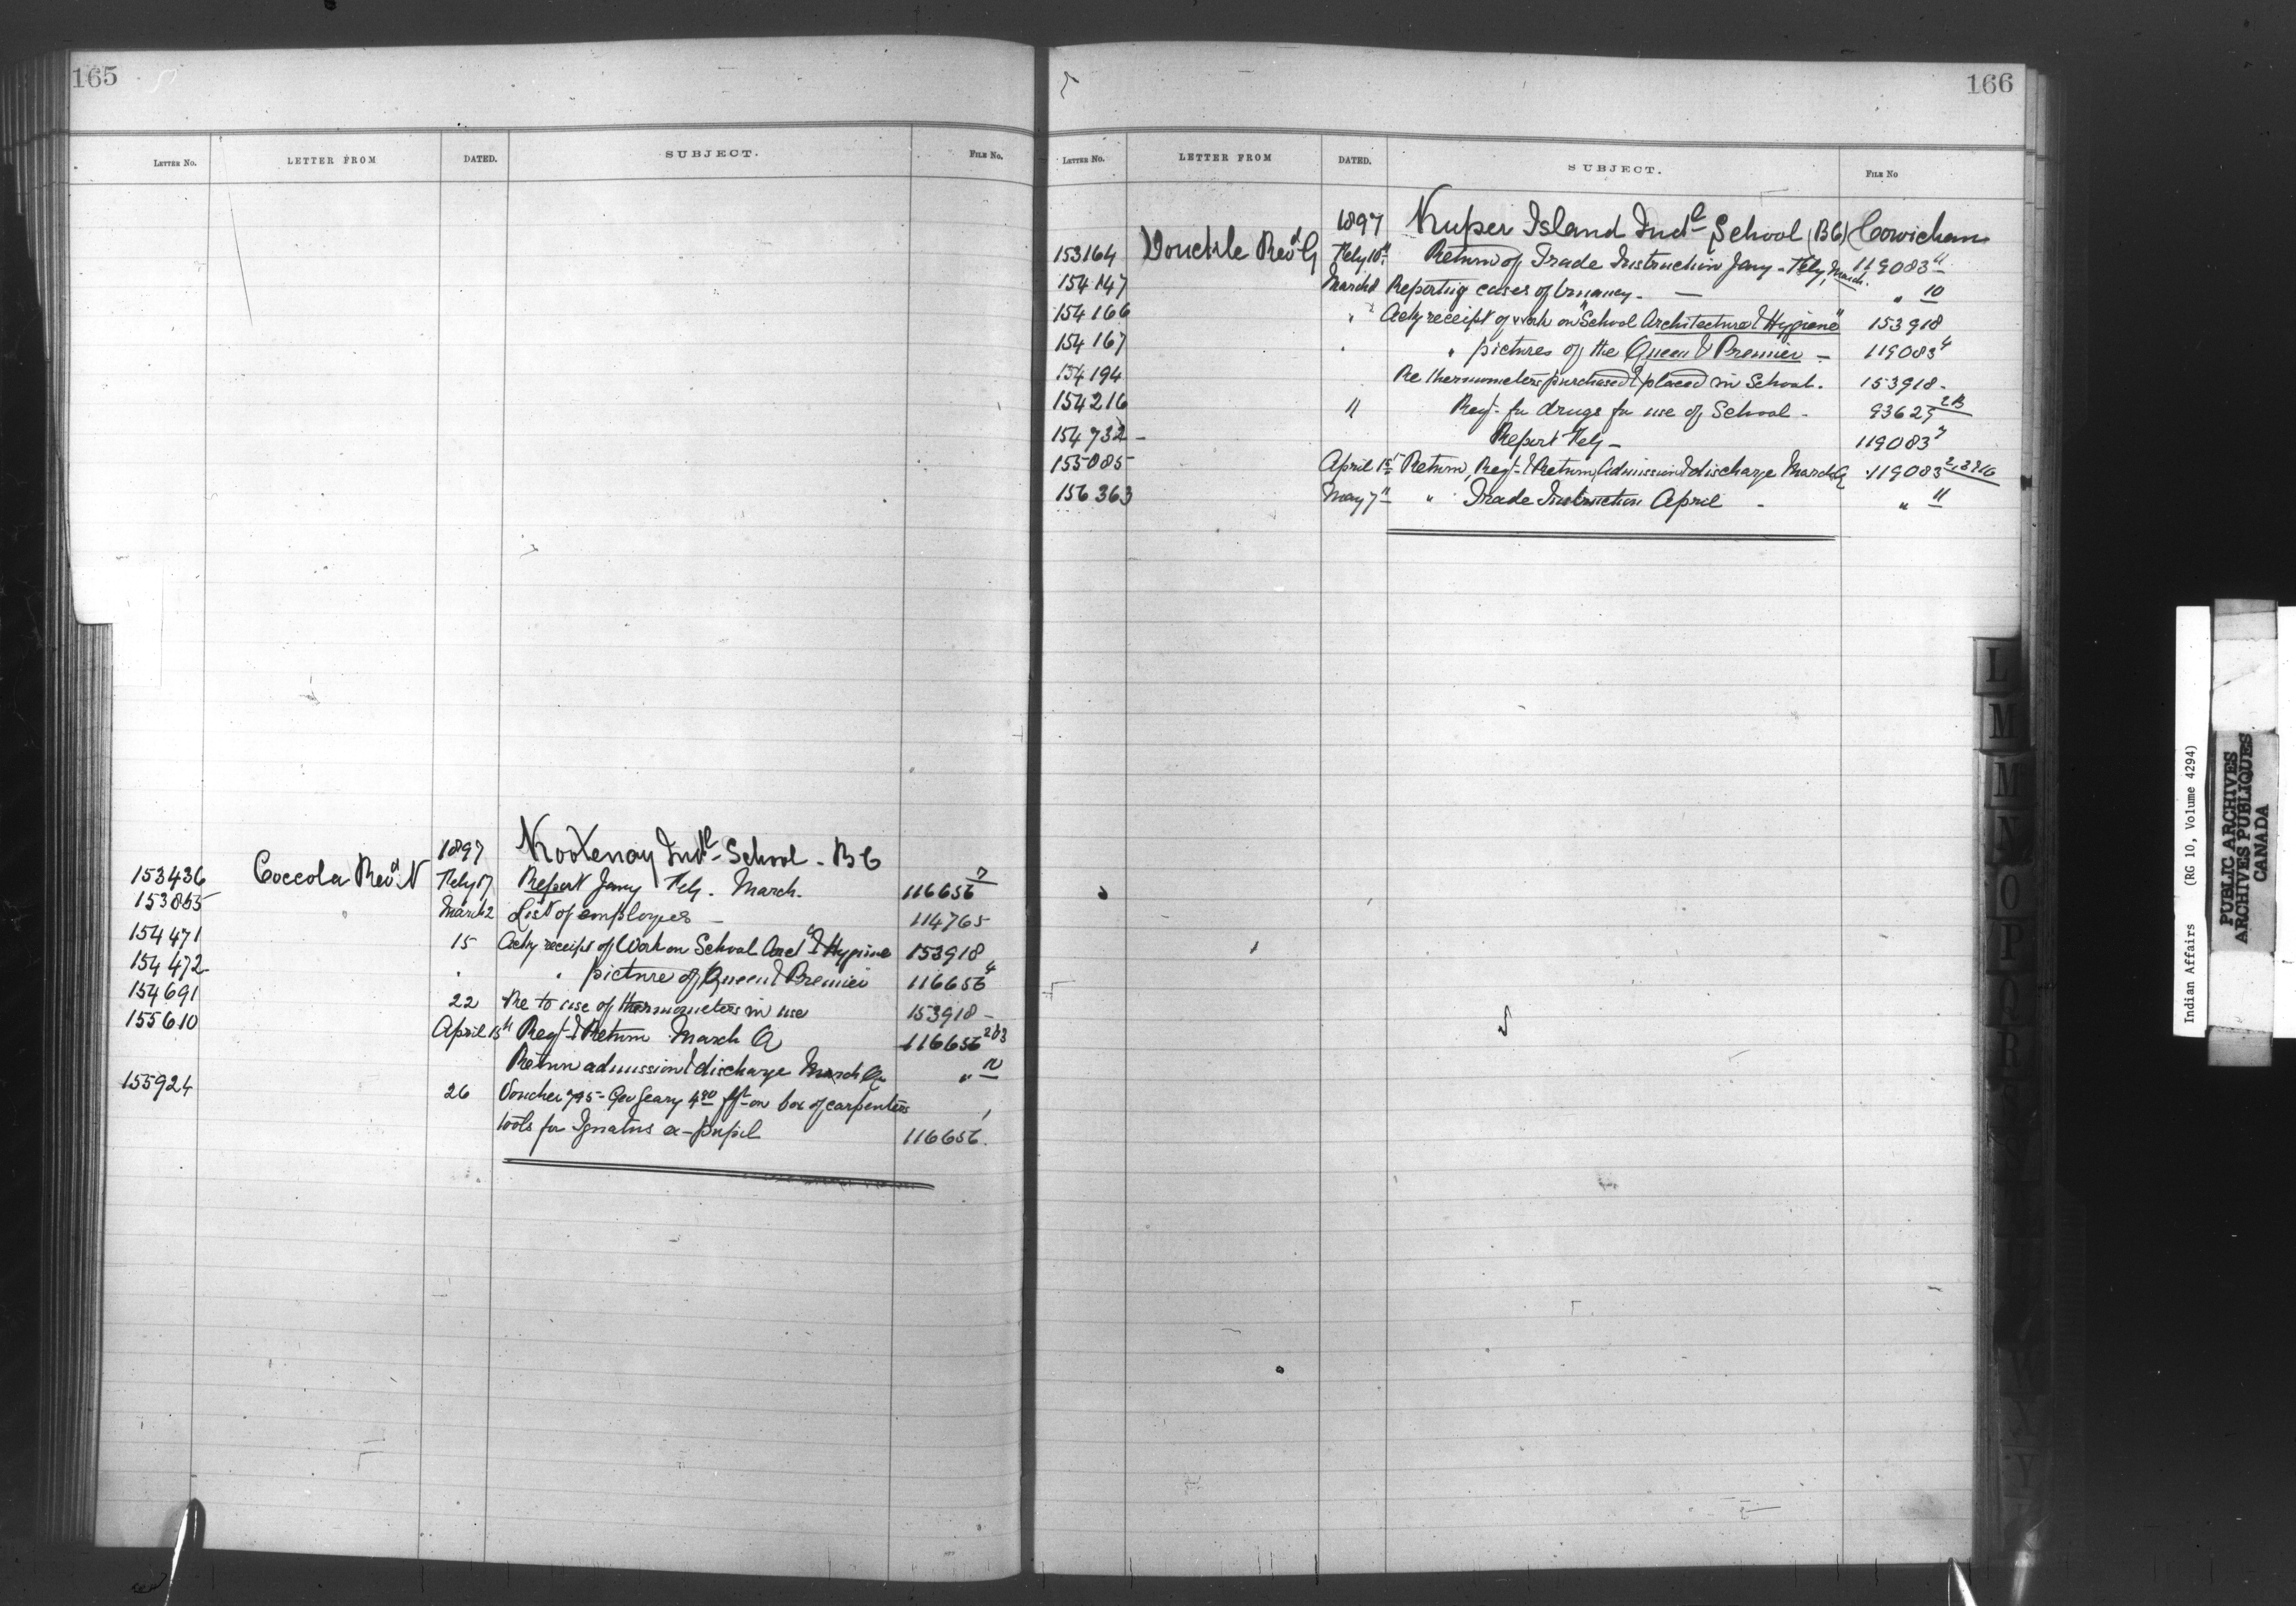 165
LETTER NO. LETTER FROM DATED. SUBJECT. FILE NO.
1897 Kootenay Indl School - BC
153436 Coccola Revd N Feby 17 Report Jany Feb. March. 116656 7
153885 March 2 List of employes - 114765
154471 15 Ackg receipt of Work on School Arct & Hygiene 153918
154472 " " picture of Queen & Premier 116656 4
154691 22 Re to use of thermometers in use 153918 -
155610 April 15th Reqt & Return March Q 116656 2&3
Return admission & discharge March Q "
155924 26 Voucher 795 - Geo Geary 4.90 frt on box of carpenters
tools for Ignatus ex-pupil 116656.
166
LETTER NO. LETTER FROM DATED. SUBJECT. FILE NO
1897 Kuper Island Indl School (BC) Cowichan
153164 Donckele Revd G Feby 10th Return of Trade Instruction Jany - Feby, March. 119083 11
154147 March 1 Reporting cases of truancy. - " 10
154166 " 2 Ackg receipt of work on "School Architecture & Hygiene" 153918
154167 " " pictures of the Queen & Premier - 119083 4
154194 Re thermometers purchased & placed in School. 153918 -
154216 11 Reqt for drugs for use of School - 93625 2B
154732 - Report Feb - 119083 7
155085 April 1st Return, Reqt & Return, Admission & discharge March Q 119083
156363 May 7th " Trade Instruction April - " 11
L
M
M
N
O
P
Q
R
Indian Affairs (RG 10, Volume 4294)
PUBLIC ARCHIVES
ARCHIVES PUBLIQUES
CANADA